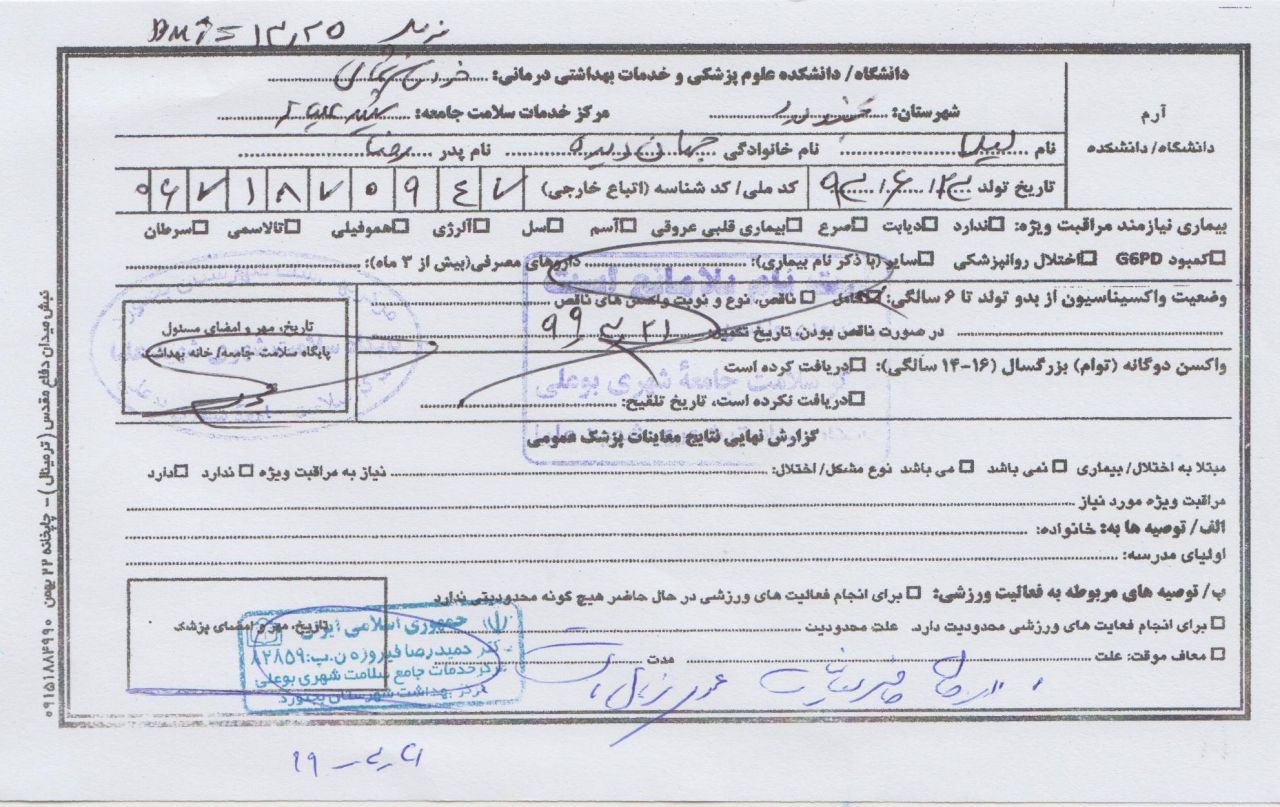 BMI = 13,25
دانشگاه/ دانشکده علوم پزشکی و خدمات بهداشتی درمانی: خراسان شمالی
آرم
دانشگاه/ دانشکده
شهرستان: بجنورد مرکز خدمات سلامت جامعه:
نام لیلا نام خانوادگی جهان دیده نام پدر رضا
تاریخ تولد کد ملی/ کد شناسه (اتباع خارجی) ۰۶۷۱۸۷۵۹۴۷
بیماری نیازمند مراقبت ویژه: ☐ندارد ☐دیابت ☐صرع ☐بیماری قلبی عروقی ☐آسم ☐سل ☐آلرژی ☐هموفیلی ☐تالاسمی ☐سرطان
☐کمبود G6PD ☐اختلال روانپزشکی ☐سایر (با ذکر نام بیماری): داروهای مصرفی(بیش از ۳ ماه):
ثبت نام بلامانع است
وضعیت واکسیناسیون از بدو تولد تا ۶ سالگی: ☐کامل ☐ ناقص، نوع و نوبت واکسن های ناقص
در صورت ناقص بودن، تاریخ تکمیل: ۹۹/۳/۲۱
تاریخ، مهر و امضای مسئول
پایگاه سلامت جامعه/خانه بهداشت
واکسن دوگانه (توام) بزرگسال (۱۶-۱۴ سالگی): ☐دریافت کرده است
سلامت جامعهٔ شهری بوعلی
☐دریافت نکرده است، تاریخ تلقیح:
گزارش نهایی نتایج معاینات پزشک عمومی
مبتلا به اختلال/ بیماری ☐ نمی باشد ☐ می باشد نوع مشکل/ اختلال: نیاز به مراقبت ویژه ☐ ندارد ☐دارد
مراقبت ویژه مورد نیاز
الف/ توصیه ها به: خانواده:
اولیای مدرسه:
ب/ توصیه های مربوطه به فعالیت ورزشی: ☐ برای انجام فعالیت های ورزشی در حال حاضر هیچ گونه محدودیتی ندارد
☐ برای انجام فعایت های ورزشی محدودیت دارد. علت محدودیت
تاریخ، مهر و امضای پزشک
☐ معاف موقت: علت مدت
جمهوری اسلامی ایران
دکتر حمیدرضا فیروزه ن.پ:۸۲۸۵۹
مرکز خدمات جامع سلامت شهری بوعلی
مرکز بهداشت شهرستان بجنورد
نبش میدان دفاع مقدس (ترمینال) – چاپخانه ۲۲ بهمن ۰۹۱۵۱۸۸۴۹۹۰